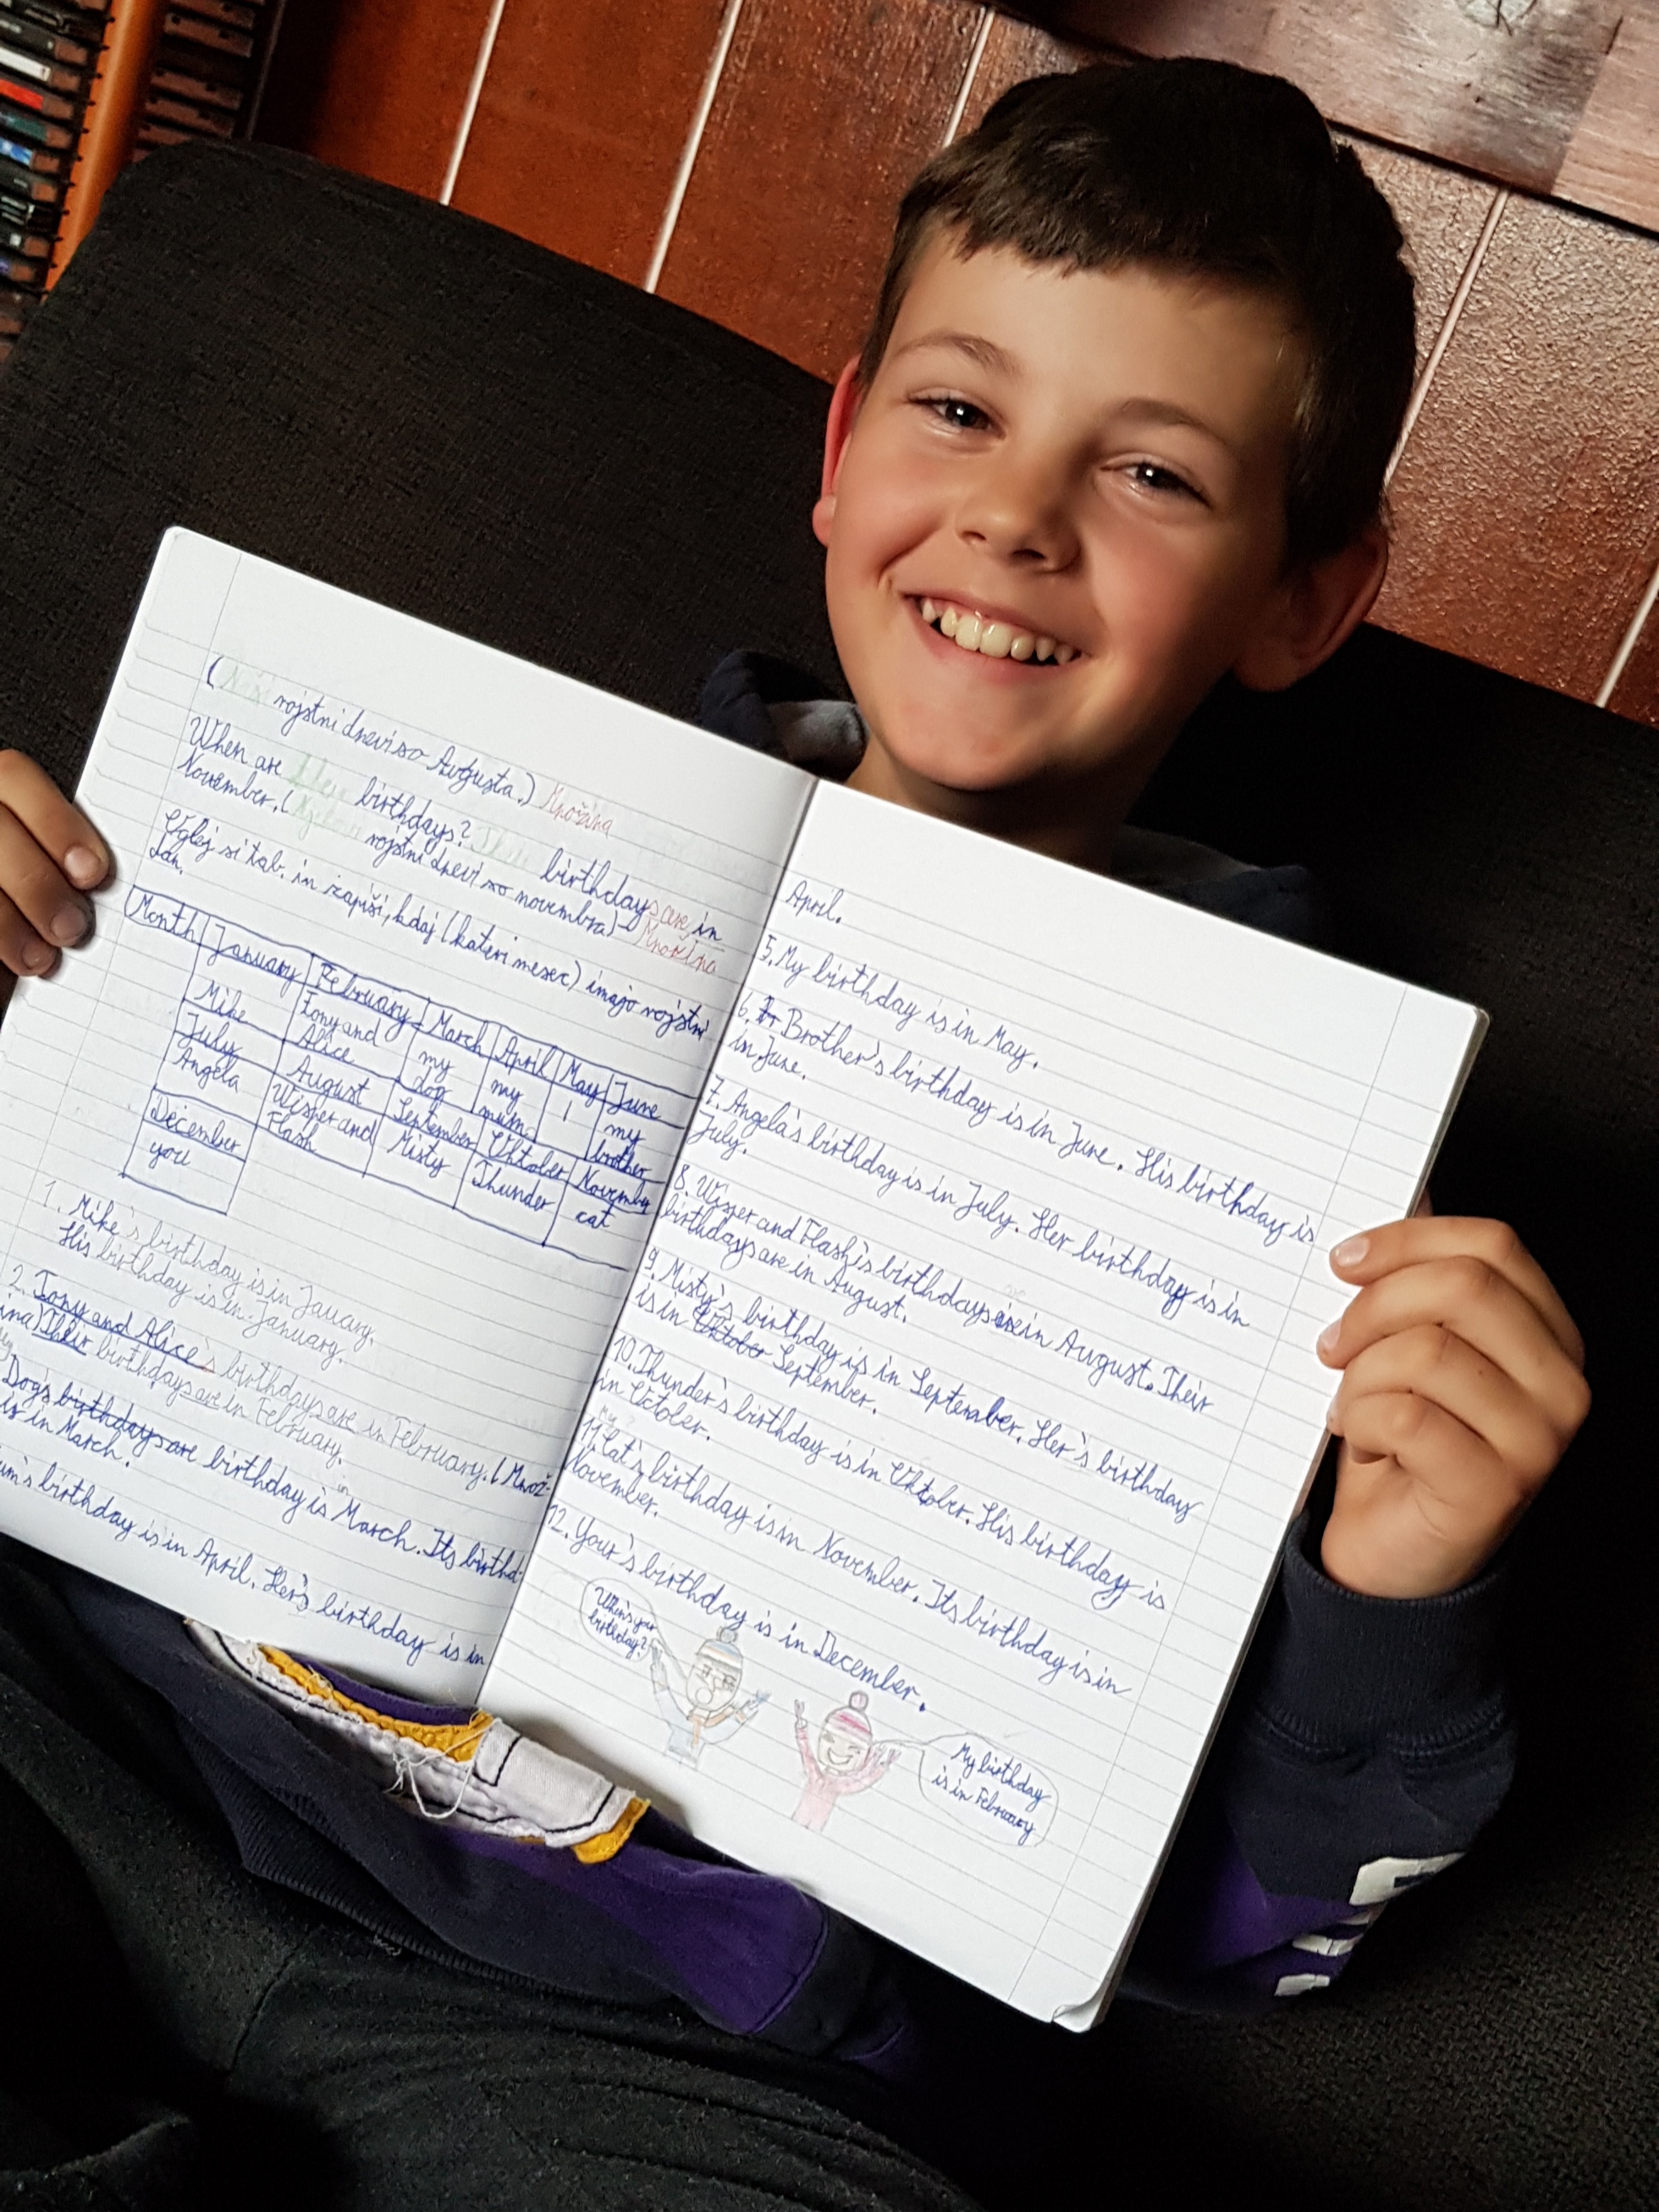 (Naši rojstni dnevi so Avgusta.) Množina
When are their birthdays? Their birthdays are in
November. (Njihovi rojstni dnevi so novembra) Množina
Oglej si tab. in zapiši, kdaj (kateri mesec) imajo rojstni
dan.
Month January February March April May June
Mike Tony and Alice my dog my mum I my brother
July August September Oktober November
Angela Wisper and Flash Misty Thunder cat
December
you
1. Mike's birthday is in Jauary.
His birthday is in January.
2. Tony and Alice's birthdays are in February. (Množ-
ina) Their birthdays are in February.
My
Dog's birthdays are birthday is in March. Its birthd-
is in March.
um's birthday is in April. Her's birthday is in
April.
5. My birthday is in May.
6. Brother's birthday is in June. His birthday is
in June.
7. Angela's birthday is in July. Her birthday is in
July.
8. Wisper and Flash's birthdays are in August. Their
birthdays are in August.
9. Misty's birthday is in September. Her's birthday
is in Oktober September.
10. Thunder's birthday is in Oktober. His birthday is
in October.
My
11. Cat's birthday is in November. Its birthday is in
November.
12. Your's birthday is in December.
When's your
birthday?
My birthday
is in February